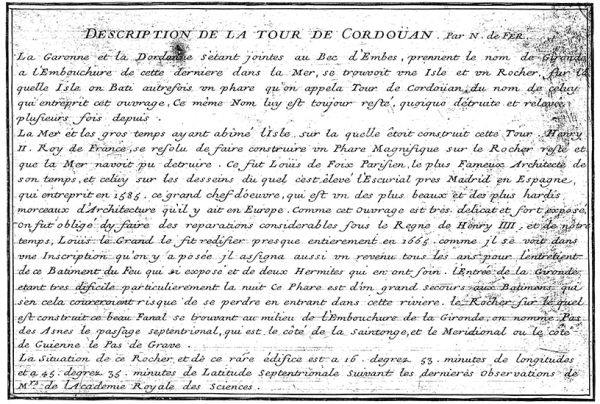 DESCRIPTION DE LA TOUR DE CORDOÜAN. Par N. de FER.
La Garonne et la Dordogne s'etant jointes au Bec d'Embes, prennent le nom de Gironde
a l'Embouchure de cette derniere dans la Mer, se trouvoit vne Isle et vn Rocher, sur la
quelle Isle on Bati autrefois vn phare qu'on appela Tour de Cordoüan, du nom de celuy
qui entreprit cet ouvrage, Ce même Nom luy est toujour resté, quoique détruite et relevée
plusieurs fois depuis.
La Mer et les gros temps ayant abimé l'Isle sur la quelle étoit construit cette Tour. Henry
II. Roy de France, se resolu de faire construire vn Phare Magnifique sur le Rocher resté et
que la Mer navoit pu detruire. Ce fut Loüis de Foix Parisien, le plus Fameux Architecte de
son temps, et celuy sur les desseins du quel c'est élevé l'Escurial pres Madrid en Espagne,
qui entreprit en 1585. ce grand chef d'oeuvre, qui est vn des plus beaux et des plus hardis
morceaux d'Architecture qu'il y ait en Europe. Comme cet Ouvrage est très delicat et fort exposé,
On fut obligé d'y faire des reparations considerables sous le Regne de Henry IIII, et de nôtre
temps, Loüis le Grand le fit redifier presque entierement en 1665. comme jl se voit dans
vne Inscription qu'on y a posée jl assigna aussi vn revenu tous les ans pour l'entretient
de ce Batiment du Feu qui si exposé et de deux Hermites qui en ont soin. l'Entrée de la Gironde
etant tres dificile particulierement la nuit ce Phare est d'vn grand secours aux Batimens qui
sen cela coureroient risque de se perdre en entrant dans cette riviere. le Rocher sur le quel
est construit ce beau Fanal se trouvant au milieu de l'Embouchure de la Gironde, on nomme Pas
des Asnes le passage septentrional, qui est le côté de la Saintonge, et le Meridional ou le côté
de Guienne le Pas de Grave.
La Situation de ce Rocher, et de ce rare édifice est a 16. degrez 53. minutes de longitudes
et a 45. degrez 35. minutes de Latitude Septentrionale Suivant les dernieres Observations de
Mrs. de l'Academie Royale des Sciences.